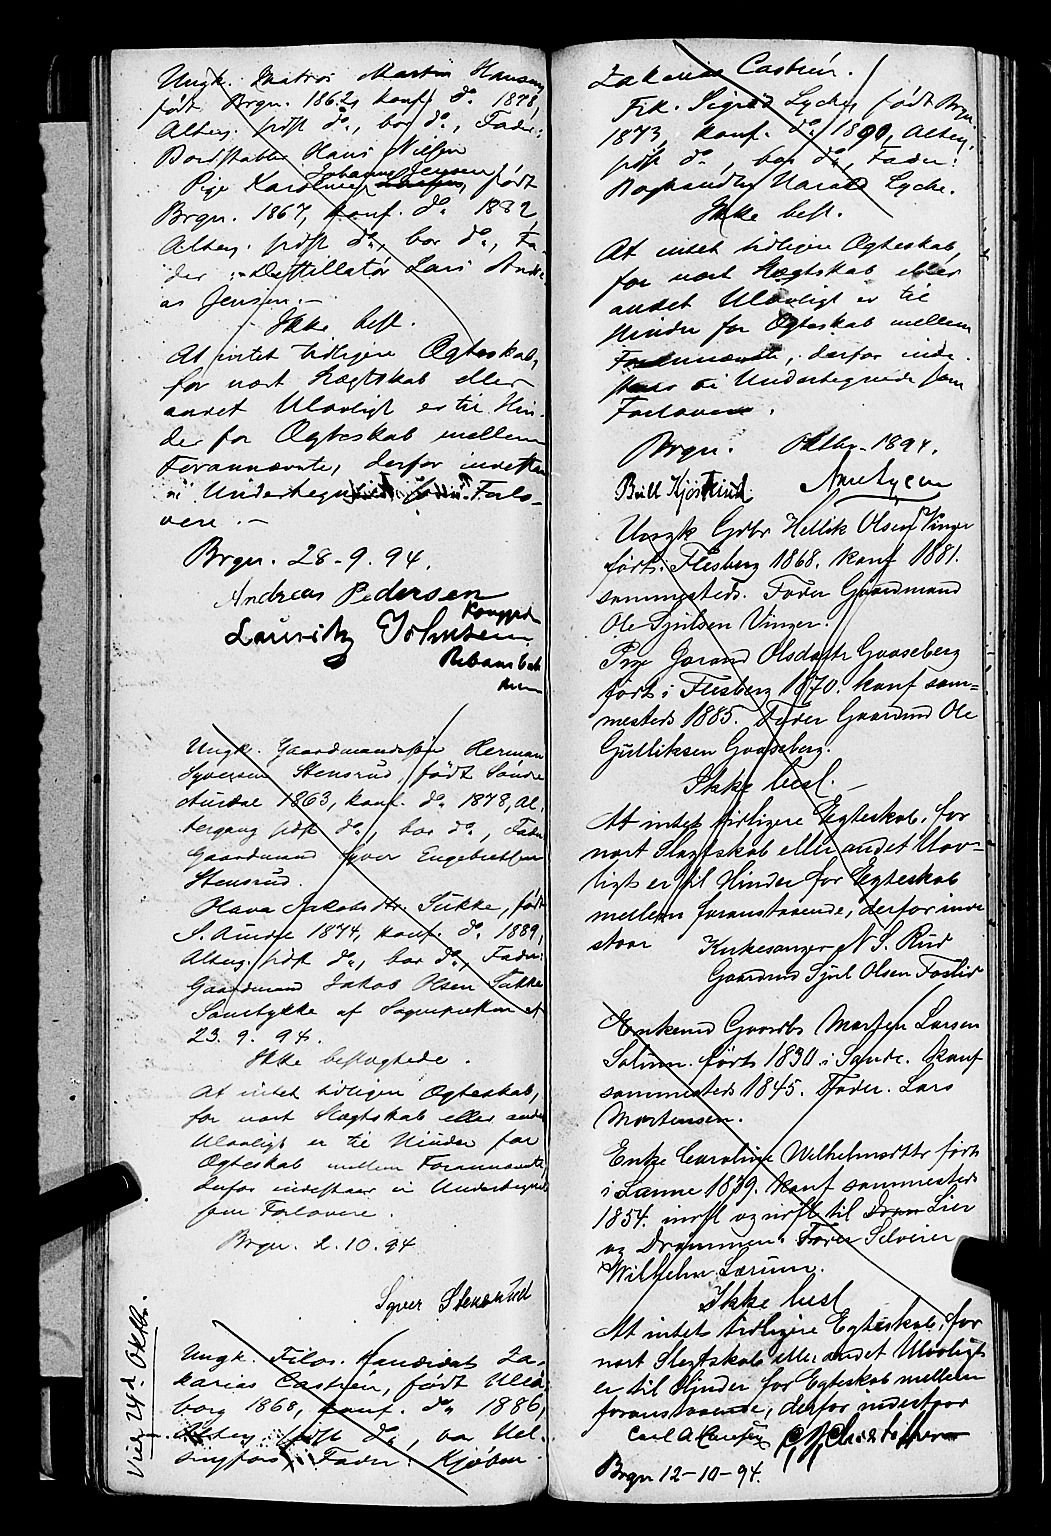 Ungk. Matros Martin Hansen
født Brgn. 1862, konf. do. 1878,
Alterg. sidst do., bor do., Fader:
Bordstabler Hans Nilsen
Johanne Jensen
Pige Karoline født
Brgn. 1867, konf. do. 1882,
Alterg. sidst do., bor do., Fa-
der: Destillatør Lars Andre-
as Jensen.-
Ikke besl.
At intet tidligere Ægteskab,
for nært Slægtskab eller
andet Ulovligt er til Hin-
der for Ægteskab mellem
Forannævnte, derfor indestaa
vi Undertegnede som Forlo-
vere.-
Brgn. 28-9.94.
Andreas Pedersen
Lauritz Johnsen
Ungk. Gaardmandssøn Herman
Syversen Stensrud, født Søndre
Aurdal 1863, konf. do. 1878, Al-
tergang sidst do., bor do., Fader
Gaardmand Syver Engebretsen
Stensrud.
Olava Jakobsdtr. Sukke, født
S. Aurdal 1874, konf. do. 1889,
Alterg. sidst do., bor do., Fader:
Gaardmand Jakob Olsen Sukke
Samtykke af Sognepresten af
23. 9. 94.
Ikke beslægtede.
At intet tidligere Ægteskab,
for nært Slægtskab eller andet
Ulovligt er til Hinder for
Ægteskab mellem Forannævnte,
derfor indestaar vi Undertegnede
som Forlovere.
Brgn. 2.10.94.
Syver Stensrud
Viet 24d. Oktbr.
Ungk. Filos. Kandidat Za-
karias Castrén, født Uleå-
borg 1868, konf. do. 1886,
Alterg. sidst do., bor Hel-
singfors, Fader: Kjøbm.
Zakarias Castrén.
Frk. Sigrid Lyche, født Brgn.
1873, konf. do. 1890, Alterg.
sidst do., bor do., Fader:
Boghandler Harald Lyche.
Ikke besl.
At intet tidligere Ægteskab,
for nært Slægtskab eller
andet Ulovligt er til
Hinder for Ægteskab mellem
Forannævnte, derfor inde-
staar vi Undertegnede som
Forlovere.
Brgn. Oktbr. 1894.
Ungk Gdbr. Hellik Olsen Vinger
født i Flesberg 1868. konf 1881.
sammesteds. Fader Gaardmand
Ole Sjulsen Vinger.
Pige Jorand Olsdatter Gaaseberg
født i Flesberg 1870. konf sam-
mesteds 1885. Fader Gaardmd Ole
Gulliksen Gaaseberg.
Ikke besl. -
At intet tidligere Egteskab, for
nært Slegtskab eller andet Ulov-
ligt er til Hinder for Egteskab
mellem foranstaaende, derfor inde
staar Kirkesanger N S. Rud
Gaardmd Sjul Olsen Foslid
Enkemd Gaardbr Morten Larsen
Solum. født 1830 i Sande. konf
sammesteds 1845. Fader. Lars
Mortensen.
Enke Caroline Wilhelmsdtr født
i Sanne 1839. konf sammesteds
1854. indfl og udfl til Lier
og Drammen. Fader Selveier
Wilhelm Lærum.
Ikke besl
At intet tidligere Egteskab, for
nært Slegtskab eller andet Ulovligt
er til Hinder for Egteskab mellem
foranstaaende, derfor indestaar
Brgn 12-10-94.